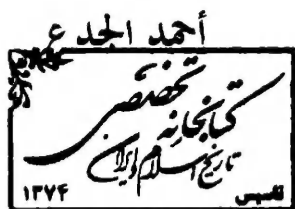 أحمد الجدع
کتابخانه تخصصی
تاریخ اسلام و ایران
تأسیس ۱۳۷۴